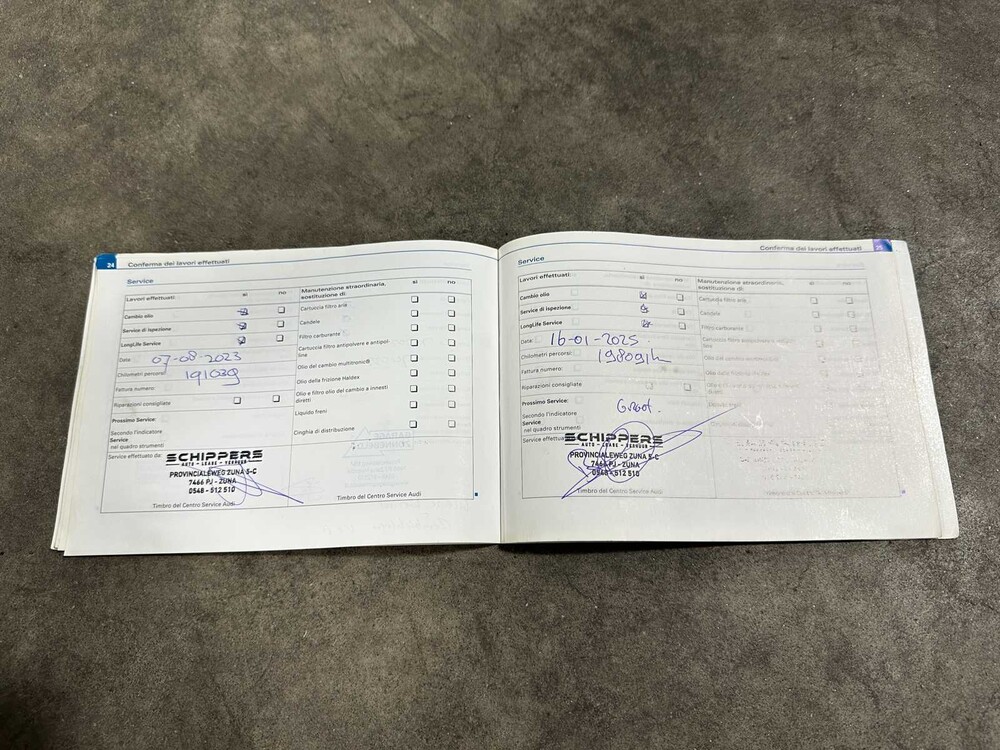 24 Conferma dei lavori effettuati
Service
Lavori effettuati: si no
Cambio olio
Service di ispezione
LongLife Service
Data: 07-08-2023
Chilometri percorsi: 191039
Fattura numero:
Riparazioni consigliate
Prossimo Service:
Secondo l'indicatore
Service
nel quadro strumenti
Service effettuato da:
SCHIPPERS
AUTO - LEASE - VERHUUR
PROVINCIALEWEG ZUNA 5-C
7466 PJ - ZUNA
0548 - 512 510
Timbro del Centro Service Audi
Manutenzione straordinaria, si no
sostituzione di:
Cartuccia filtro aria
Candele
Filtro carburante
Cartuccia filtro antipolvere e antipol-
line
Olio del cambio multitronic®
Olio della frizione Haldex
Olio e filtro olio del cambio a innesti
diretti
Liquido freni
Cinghia di distribuzione
Conferma dei lavori effettuati 25
Service
Lavori effettuati: si no
Cambio olio
Service di ispezione
LongLife Service
Data: 16-01-2025
Chilometri percorsi:
Fattura numero:
Riparazioni consigliate
Prossimo Service:
Secondo l'indicatore
Service
nel quadro strumenti
Groot.
Service effettuato
SCHIPPERS
AUTO - LEASE - VERHUUR
PROVINCIALEWEG ZUNA 5-C
7466 PJ - ZUNA
0548 - 512 510
Timbro del Centro Service Audi
Manutenzione straordinaria, si no
sostituzione di:
Cartuccia filtro aria
Candele
Filtro carburante
Cartuccia filtro antipolvere e antipol-
line